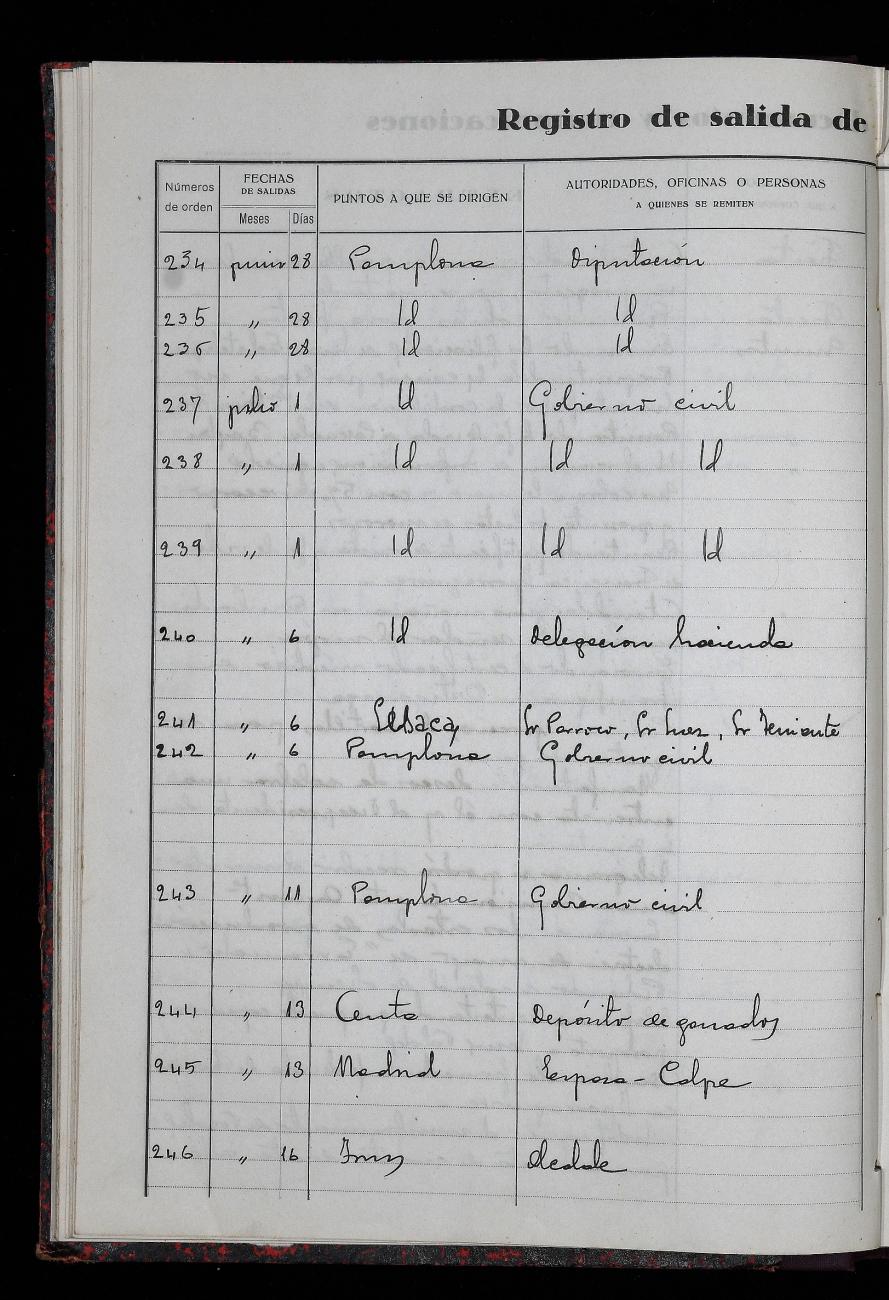 Registro de salida de
Números de orden
FECHAS DE SALIDAS
Meses Días
PUNTOS A QUE SE DIRIGEN
AUTORIDADES, OFICINAS O PERSONAS
A QUIENES SE REMITEN
234 junio 28 Pamplona Diputación
235 " 28 Id Id
236 " 28 Id Id
237 julio 1 Id Gobierno civil
238 " 1 Id Id Id
239 " 1 Id Id Id
240 " 6 Id Delegación hacienda
241 " 6 Sr Parroco, Sr Juez, Sr Teniente
242 " 6 Pamplona Gobierno civil
243 " 11 Pamplona Gobierno civil
244 " 13 Ceuta Depósito de ganados
245 " 13 Madrid Espasa-Calpe
246 " 16 Irun Alcalde